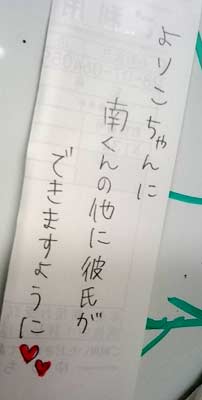 よりこちゃんに
南くんの他に彼氏が
できますように